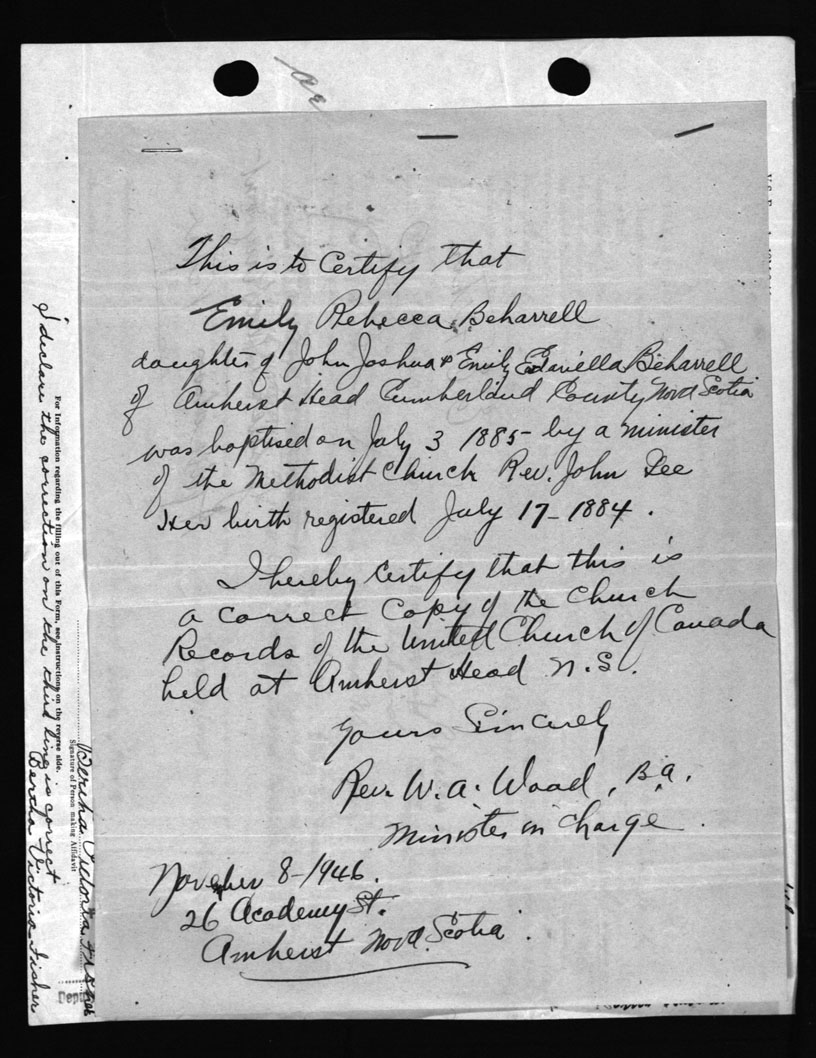 This is to Certify that
Emily Rebecca Beharrell
daughter of John Joshua & Emily Beharrell
of Amherst Head Cumberland County Nova Scotia
was baptised on July 3 1885 - by a minister
of the Methodist Church Rev. John Gee
Her birth registered July 17 - 1884.
I hereby Certify that this is
a correct Copy of the Church
Records of the United Church of Canada
held at Amherst Head N.S.
Yours Sincerely
Rev. W. A. Wood, B.A.
Minister in Charge.
November 8 - 1946.
26 Academy St.
Amherst Nova Scotia.
For Information regarding the filling out of this Form, see instructions on the reverse side.
I declare the correction on the third line is correct
Bertha Victoria Fisher
Bertha Victoria Fisher
Signature of Person making Affidavit